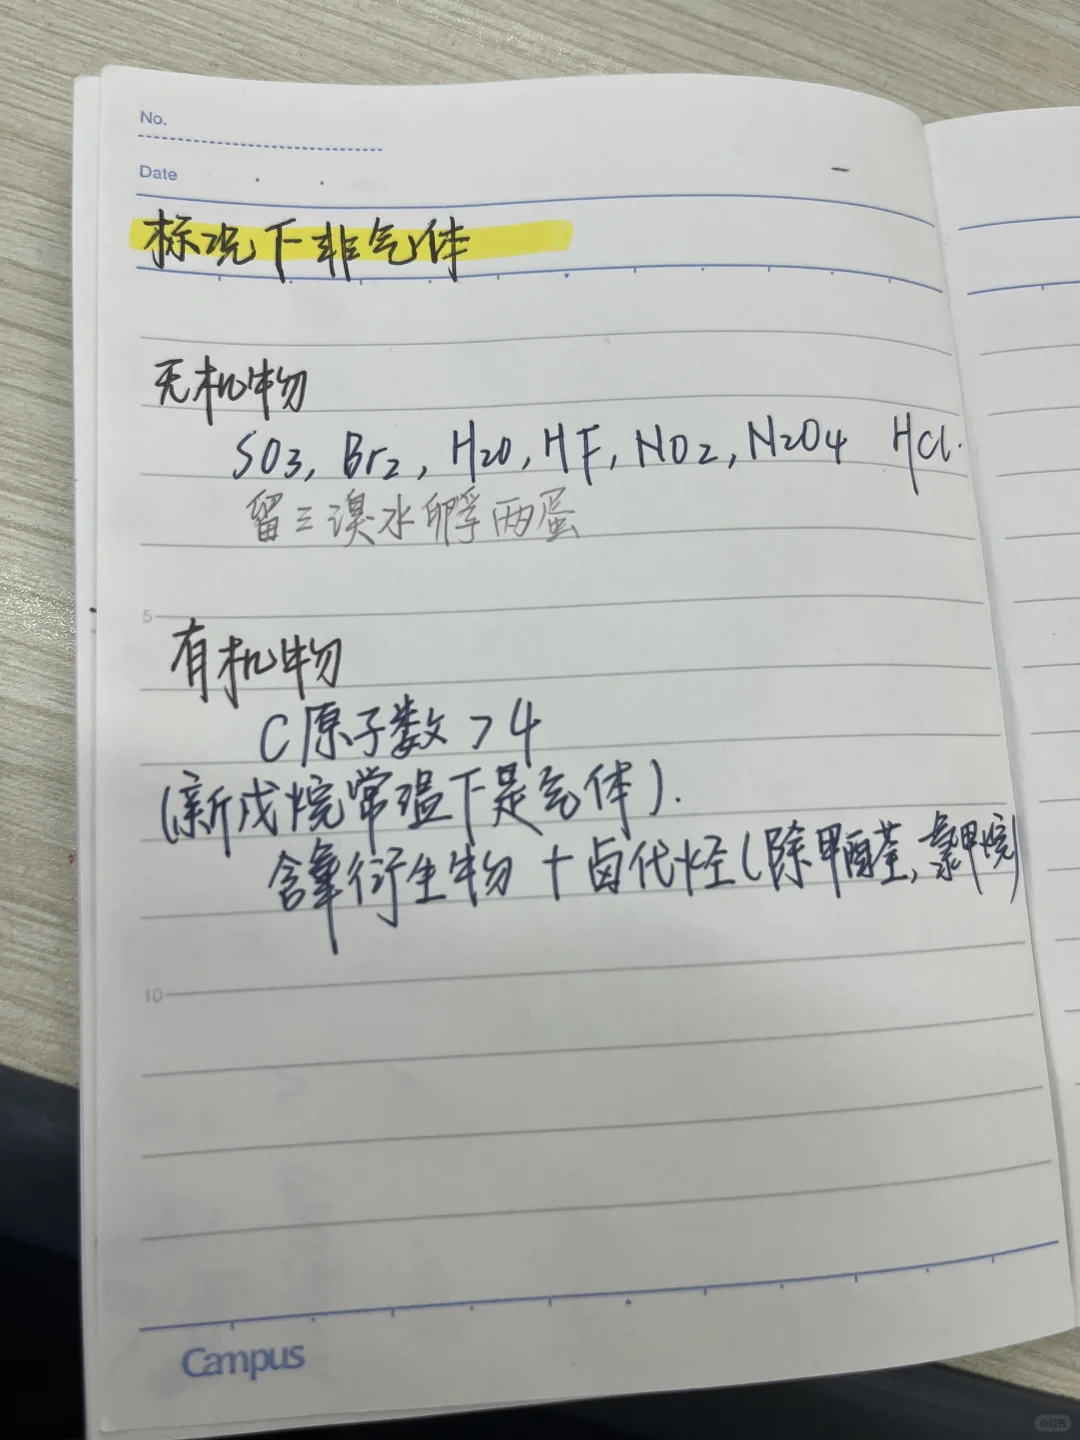 No.
Date
标况下非气体
无机物
SO3, Br2, H2O, HF, NO2, N2O4 HCl.
留三溴水孵两蛋
5
有机物
C原子数>4
(新戊烷常温下是气体).
含氧衍生物+卤代烃(除甲醛,氯甲烷)
10
Campus
小红书